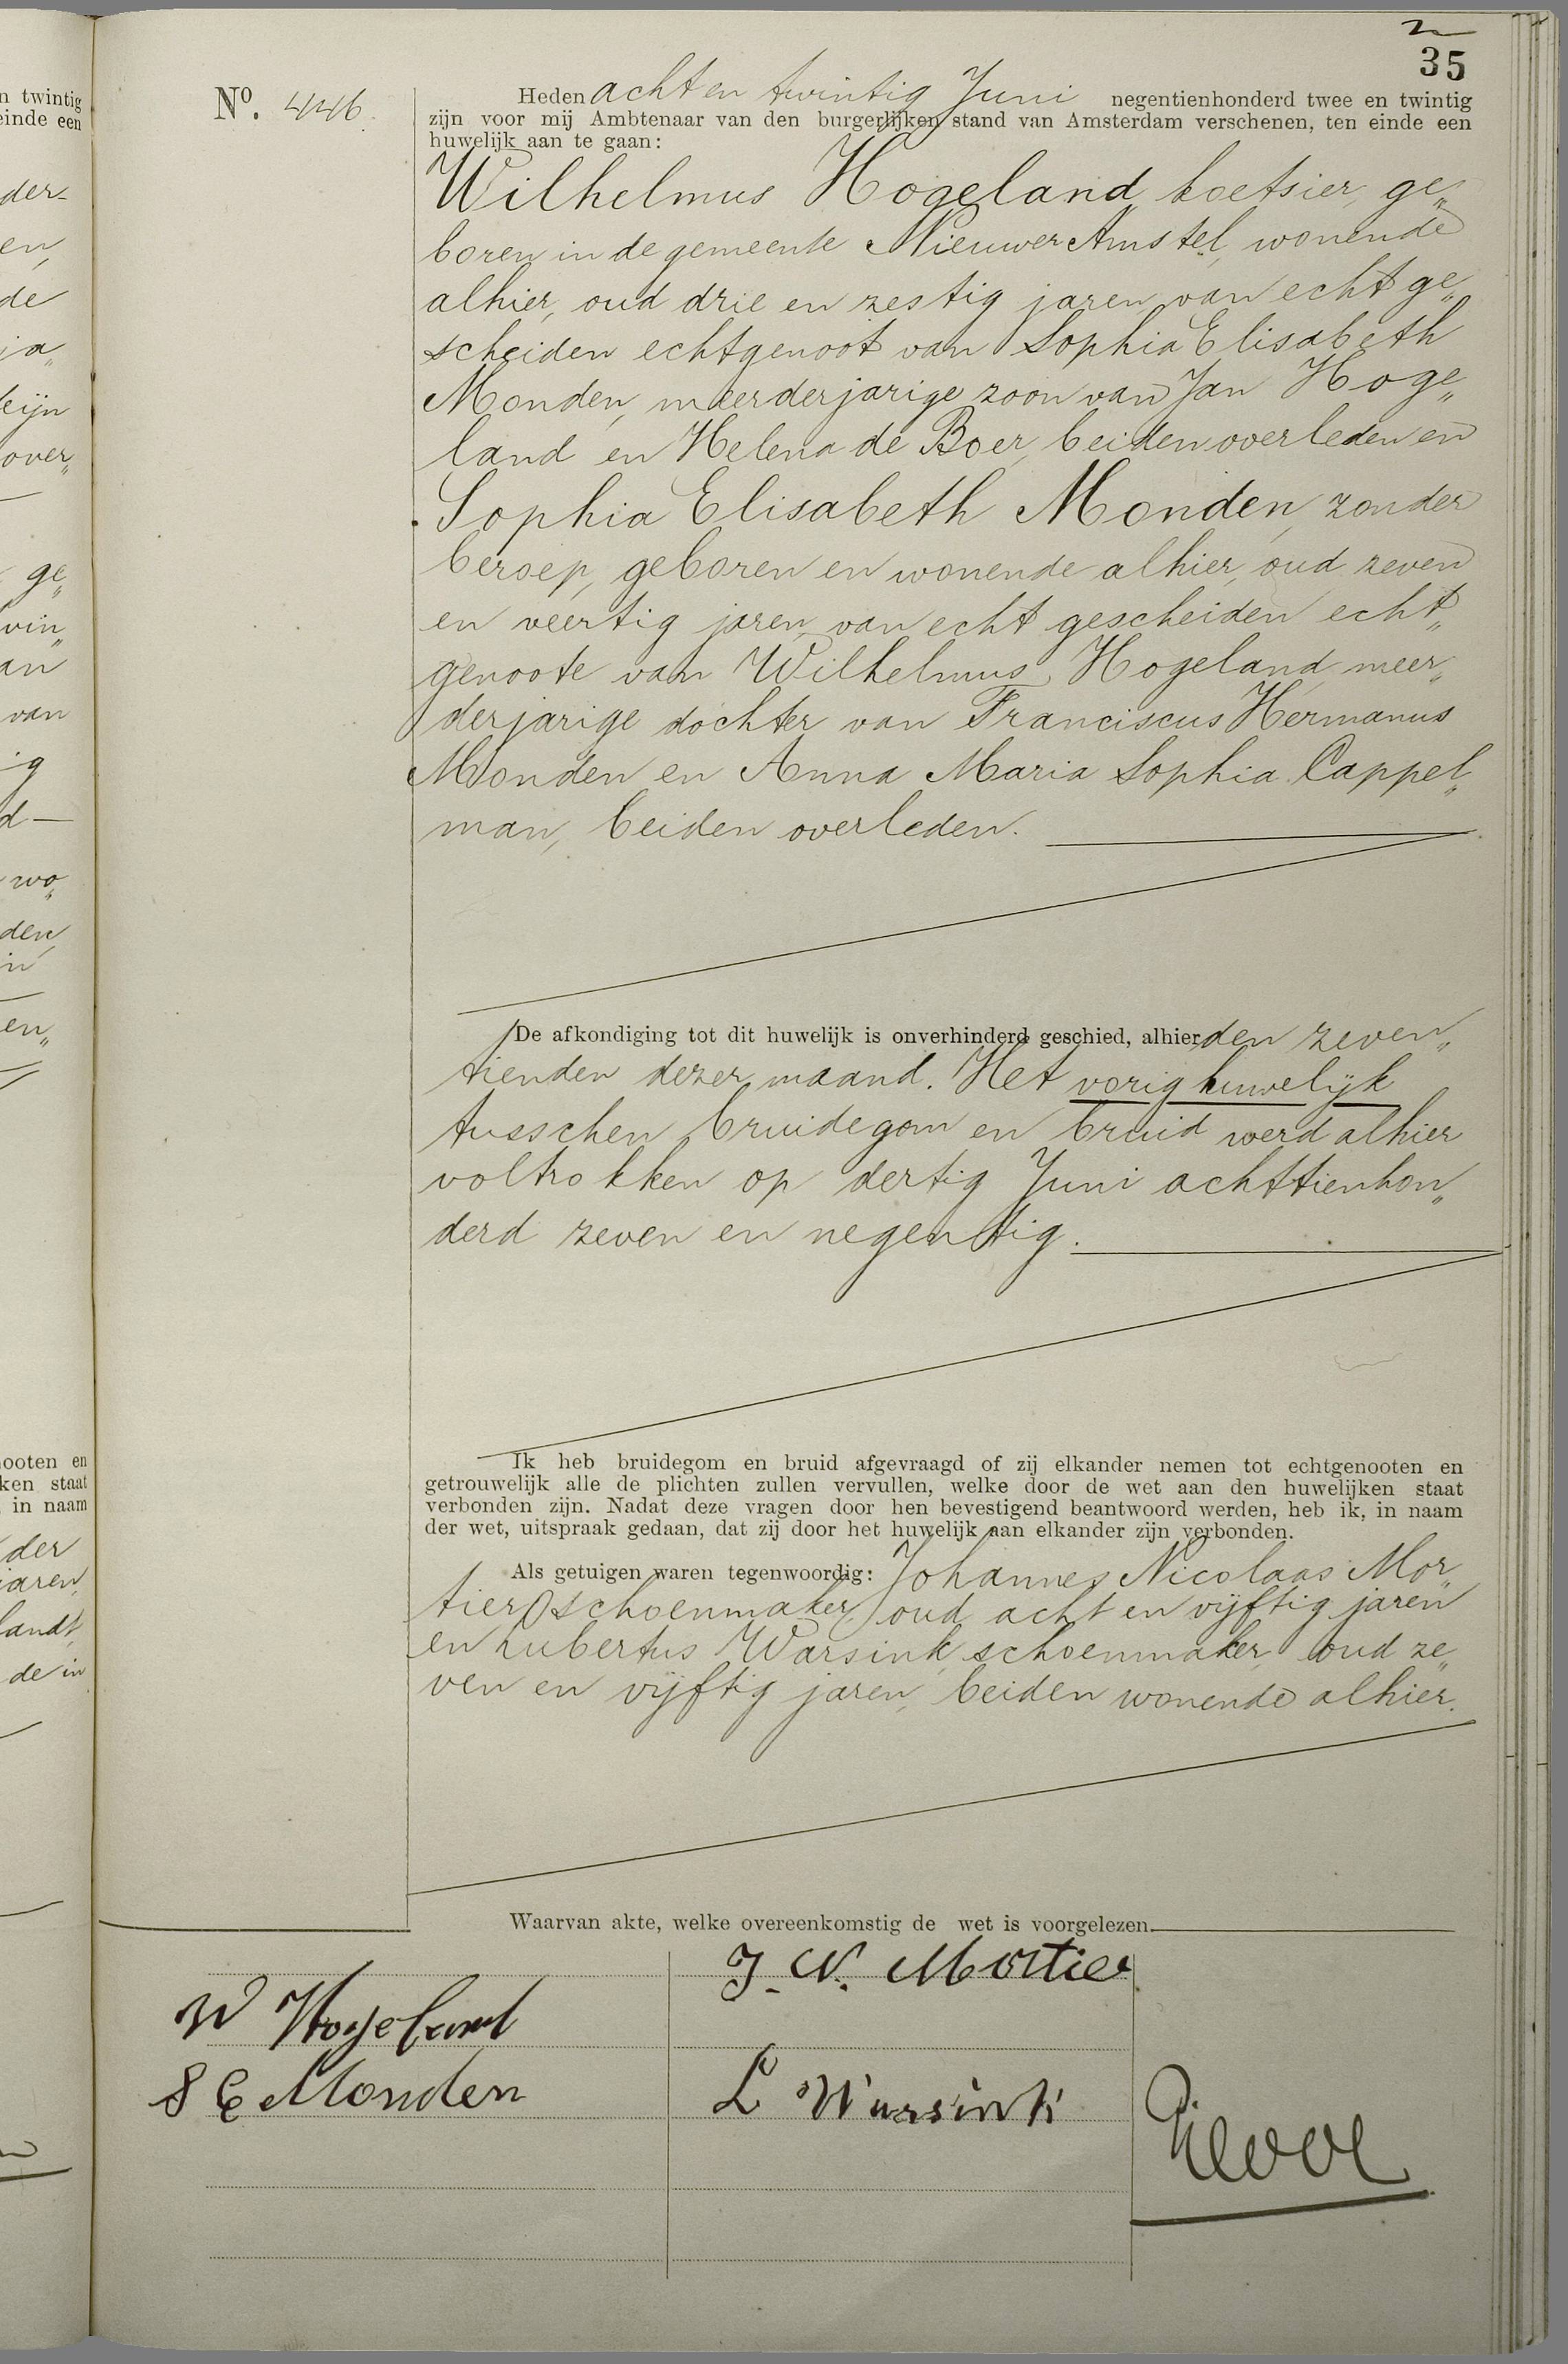 35
n twintig
einde een
der-
en,
de
ja„
leijn
over„
ge„
vin„
an
van
ig
d—
wo„
den,
in
en„
ooten en
ken staat
in naam
der
jaren,
landt,
de in
No. 446.
Heden acht en twintig Juni negentienhonderd twee en twintig
zijn voor mij Ambtenaar van den burgerlijken stand van Amsterdam verschenen, ten einde een
huwelijk aan te gaan:
Wilhelmus Hogeland, koetsier, ge„
boren in de gemeente Nieuwer Amstel, wonende
alhier, oud drie en zestig jaren, van echt ge„
scheiden echtgenoot van Sophia Elisabeth
Monden, meerderjarige zoon van Jan Hoge„
land en Helena de Boer, beiden overleden en
Sophia Elisabeth Monden, zonder
beroep, geboren en wonende alhier, oud zeven
en veertig jaren, van echt gescheiden echt„
genoote van Wilhelmus Hogeland, meer„
derjarige dochter van Franciscus Hermanus
Monden en Anna Maria Sophia Cappel„
man, beiden overleden.
De afkondiging tot dit huwelijk is onverhinderd geschied, alhier, den zeven„
tienden dezer maand. Het vorig huwelijk
tusschen bruidegom en bruid werd alhier
voltrokken op dertig Juni achttienhon„
derd zeven en negentig.
Ik heb bruidegom en bruid afgevraagd of zij elkander nemen tot echtgenooten en
getrouwelijk alle de plichten zullen vervullen, welke door de wet aan den huwelijken staat
verbonden zijn. Nadat deze vragen door hen bevestigend beantwoord werden, heb ik, in naam
der wet, uitspraak gedaan, dat zij door het huwelijk aan elkander zijn verbonden.
Als getuigen waren tegenwoordig: Johannes Nicolaas Mor„
tier, schoenmaker, oud acht en vijftig jaren
en Lubertus Warsink, schoenmaker, oud ze„
ven en vijftig jaren, beiden wonende alhier.
Waarvan akte, welke overeenkomstig de wet is voorgelezen.
J. N. Mortier
W Hogeland
S E Monden
L Warsink